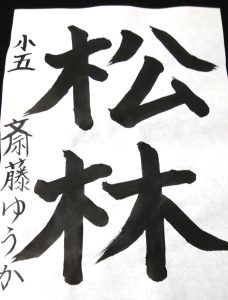 松林
小五
斎藤ゆうか